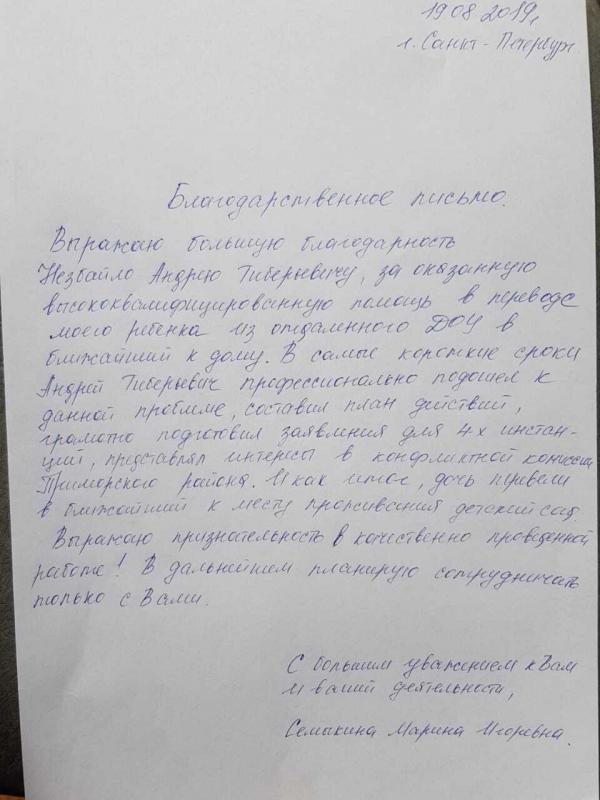 19.08.2019г
г. Санкт-Петербург
Благодарственное письмо.
Выражаю большую благодарность
Незбайло Андрею Тиберьевичу, за оказанную
высококвалифицированную помощь в переводе
моего ребенка из отдаленного ДОУ в
ближайший к дому. В самые короткие сроки
Андрей Тиберьевич профессионально подошел к
данной проблеме, составил план действий,
грамотно подготовил заявления для 4х инстан-
ций, представлял интересы в конфликтной комиссии
Приморского района. И как итог, дочь перевели
в ближайший к месту проживания детский сад.
Выражаю признательность в качественно проведенной
работе! В дальнейшем планирую сотрудничать
только с Вами.
С большим уважением к Вам
и вашей деятельности,
Семыкина Марина Игоревна.